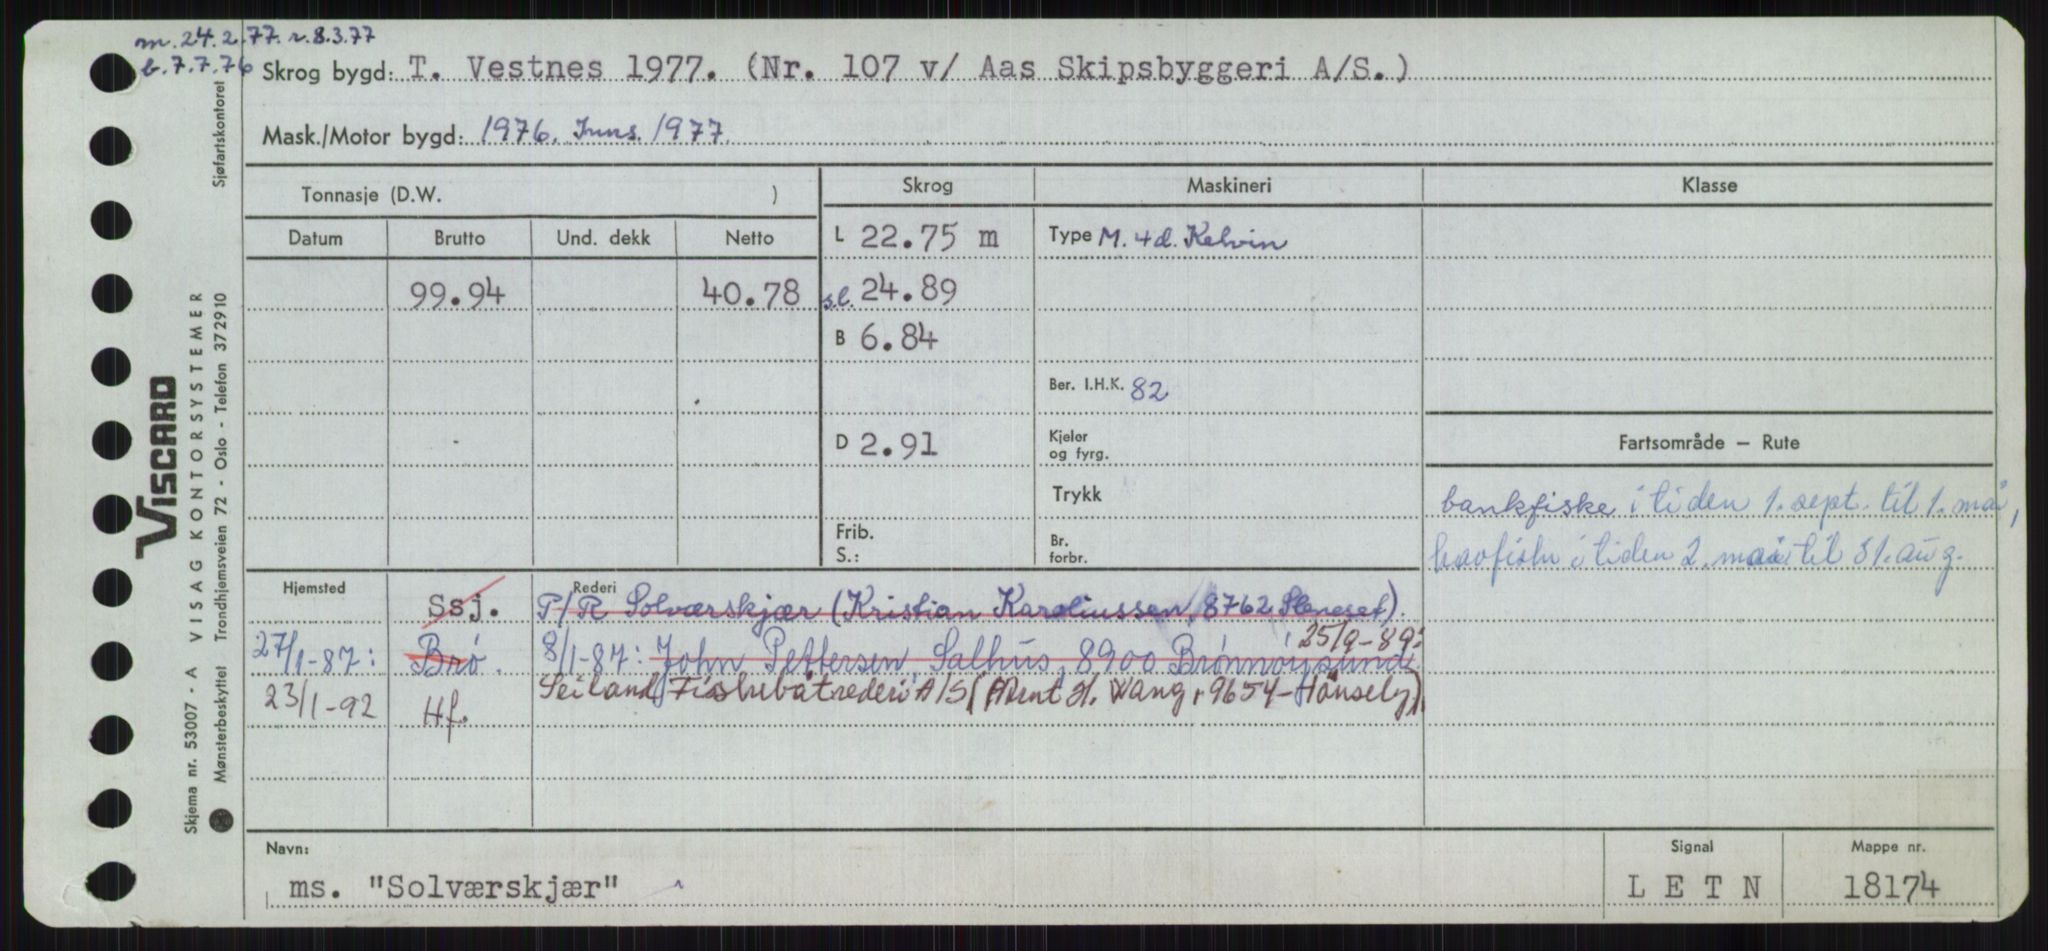 m. 24.2.77. r. 8.3.77
b. 7.7.76
Skrog bygd: T. Vestnes 1977. (Nr. 107 v/ Aas Skipsbyggeri A/S.)
Mask./Motor bygd: 1976. Inns. 1977.
Tonnasje (D.W. )
Skrog
Maskineri
Klasse
Datum Brutto Und. dekk Netto
L 22.75 m
Type M. 4 d. Kelvin
99.94 40.78
s.l. 24.89
B 6.84
Ber. I.H.K. 82
D 2.91
Kjeler
og fyrg.
Fartsområde – Rute
Trykk
bankfiske i tiden 1. sept. til 1. mai,
Frib.
S.:
Br.
forbr.
havfiske i tiden 2. mai til 31. aug.
Hjemsted
Rederi
Ssj. P/R Solværskjær (Kristian Karoliussen, 8762 Sleneset).
27/1-87: Brø. 8/1-87: John Pettersen, Salhus, 8900 Brønnøysund. 25/9-89:
23/1-92 Hf. Seiland Fiskebåtrederi A/S (Arent H. Wang, 9654-Hønseby)
Navn:
ms. "Solværskjær"
Signal
LETN
Mappe nr.
18174
Skjema nr. 53007 - A VISAG KONTORSYSTEMER
Mønsterbeskyttet Trondhjemsveien 72 - Oslo - Telefon 372910 Sjøfartskontoret
VISCARD